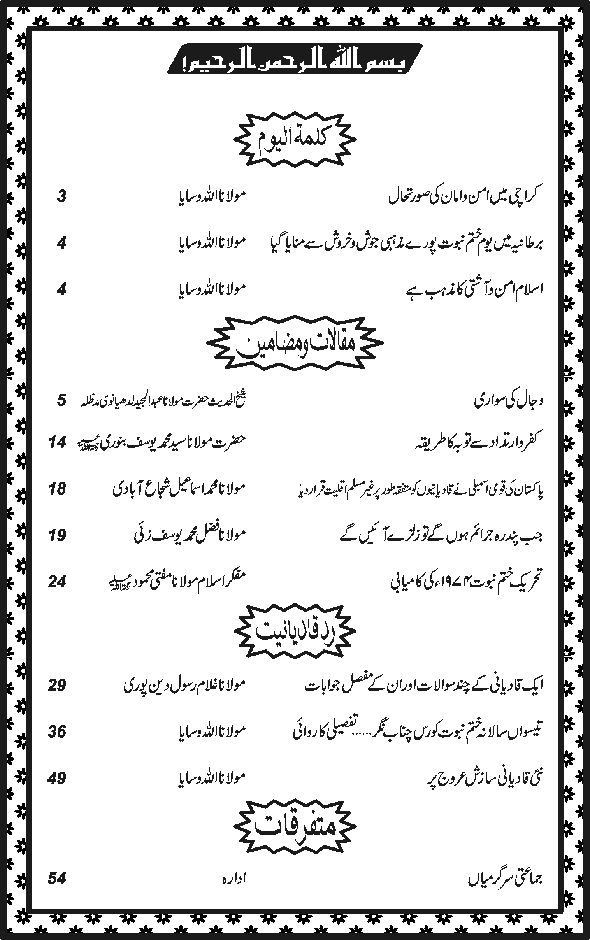 بسم اللہ الرحمن الرحیم!
کلمۃ الیوم
کراچی میں امن و امان کی صورتحال مولانا اللہ وسایا 3
برطانیہ میں یوم ختم نبوت پورے مذہبی جوش و خروش سے منایا گیا مولانا اللہ وسایا 4
اسلام امن و آشتی کا مذہب ہے مولانا اللہ وسایا 4
مقالات و مضامین
دجال کی سواری شیخ الحدیث حضرت مولانا عبدالمجید لدھیانوی مدظلہ 5
کفر و ارتداد سے توبہ کا طریقہ حضرت مولانا سید محمد یوسف بنوری رحمۃ اللہ علیہ 14
پاکستان کی قومی اسمبلی نے قادیانیوں کو متفقہ طور پر غیر مسلم اقلیت قرار دیا مولانا محمد اسماعیل شجاع آبادی 18
جب پندرہ جرائم ہوں گے تو زلزلے آئیں گے مولانا فضل محمد یوسف زئی 19
تحریک ختم نبوت ۱۹۷۴ء کی کامیابی مفکر اسلام مولانا مفتی محمود رحمۃ اللہ علیہ 24
رد قادیانیت
ایک قادیانی کے چند سوالات اور ان کے مفصل جوابات مولانا غلام رسول دین پوری 29
تیسواں سالانہ ختم نبوت کورس چناب نگر ...... تفصیلی کاروائی مولانا اللہ وسایا 36
نئی قادیانی سازش عروج پر مولانا اللہ وسایا 49
متفرقات
جماعتی سرگرمیاں ادارہ 54